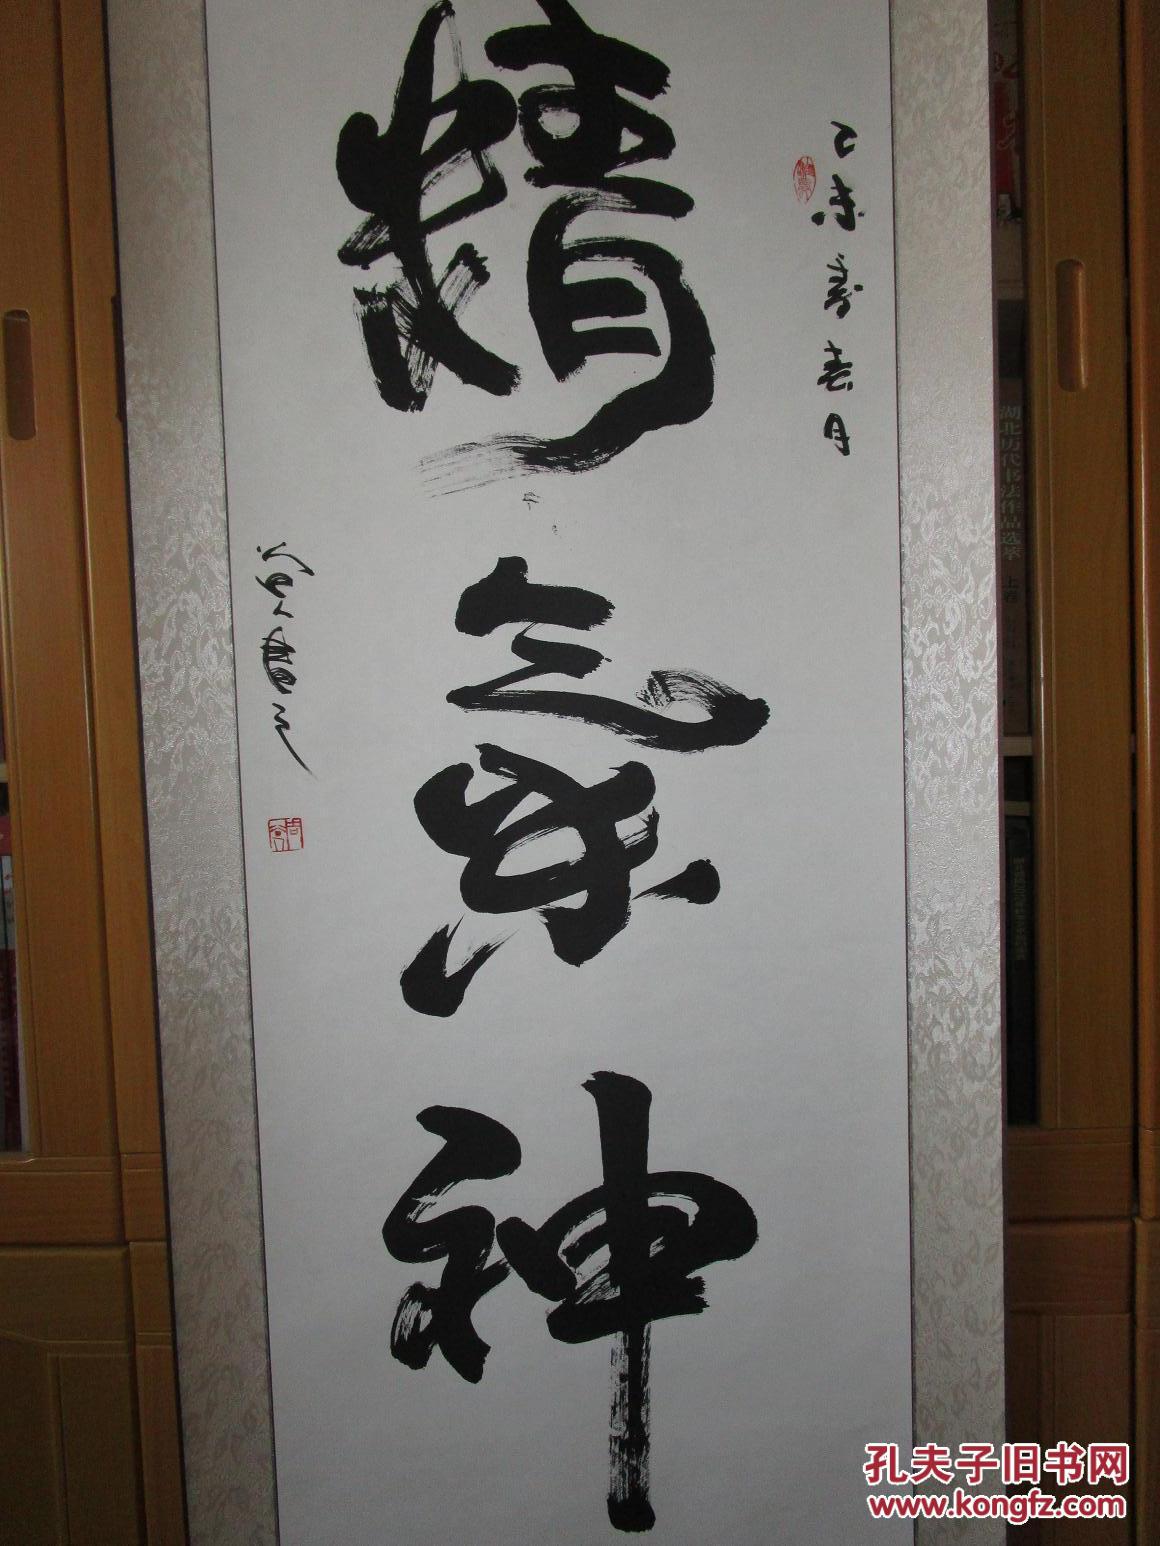 乙未
春月
精
氣
神
書
湖北历代书法作品选萃 上卷
孔夫子旧书网
www.kongfz.com